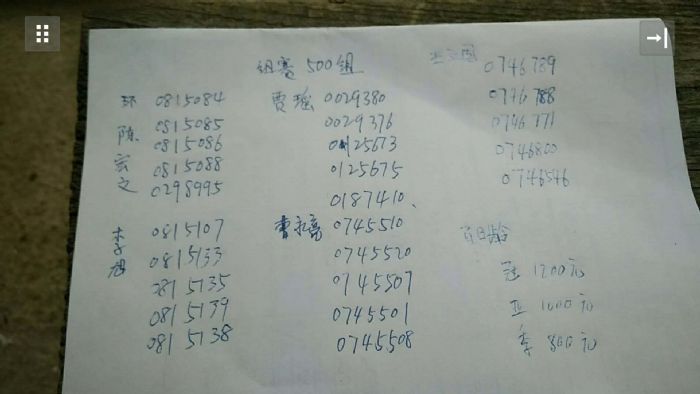 组赛 500组
环 陈宏文
0815084
0815085
0815086
0815088
0298995
李旭
0815107
0815133
0815135
0815139
0815138
贾瑞 0029380
0029376
0125673
0125675
0187410、
曹永高 0745510
0745520
0745507
0745501
0745508
0746789
0746788
0746771
0746800
0746546
百日龄
冠 1200元
亚 1000元
季 800元